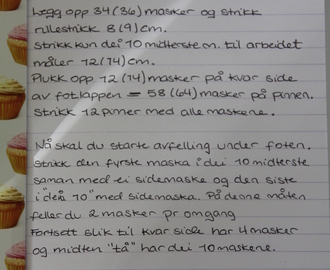 Legg opp 34 (36) masker og strikk
rillestrikk 8 (9) cm.
Strikk kun dei 10 midterste m. til arbeidet
måler 12 (14) cm.
Plukk opp 12 (14) masker på kvar side
av fotlappen = 58 (64) masker på pinnen.
Strikk 12 pinner med alle maskene.
Nå skal du starte avfelling under foten.
Strikk den fyrste maska i dei 10 midterste
saman med ei sidemaske og den siste
i "dei 10" med sidemaska. På denne måten
feller du 2 masker pr omgang
Fortsett slik til kvar side har 4 masker
og midten "tå" har dei 10 maskene.